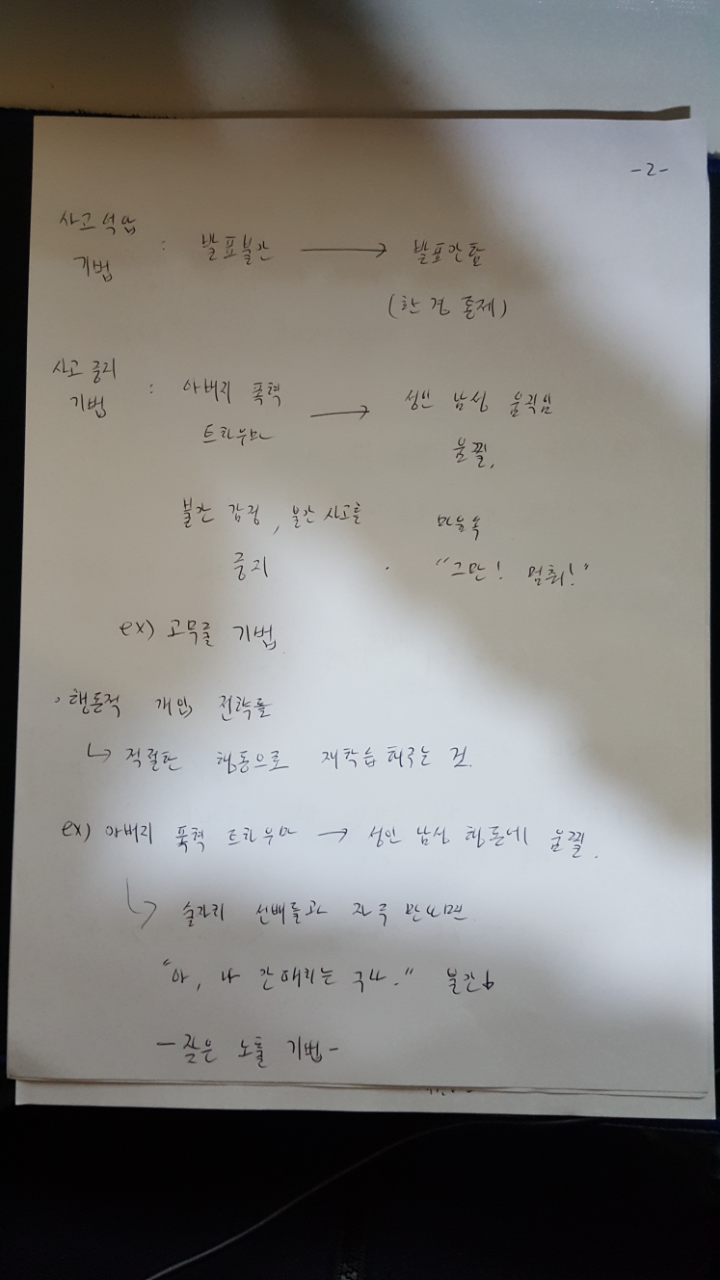 -2-
사고 억압
기법 : 발표불안 → 발표안함
(환경 통제)
사고 중지
기법 : 아버지 폭력 → 성인 남성 움직임
트라우마 움찔,
불안 감정, 불안 사고를 마음속
중지 "그만! 멈춰!"
ex) 고무줄 기법
· 행동적 개입 전략들
↳ 적절한 행동으로 재학습 해주는 것.
ex) 아버지 폭력 트라우마 → 성인 남성 행동에 움찔.
↳ 술자리 선배들과 자주 만나면
"아, 나 안때리는 구나." 불안↓
- 잦은 노출 기법 -